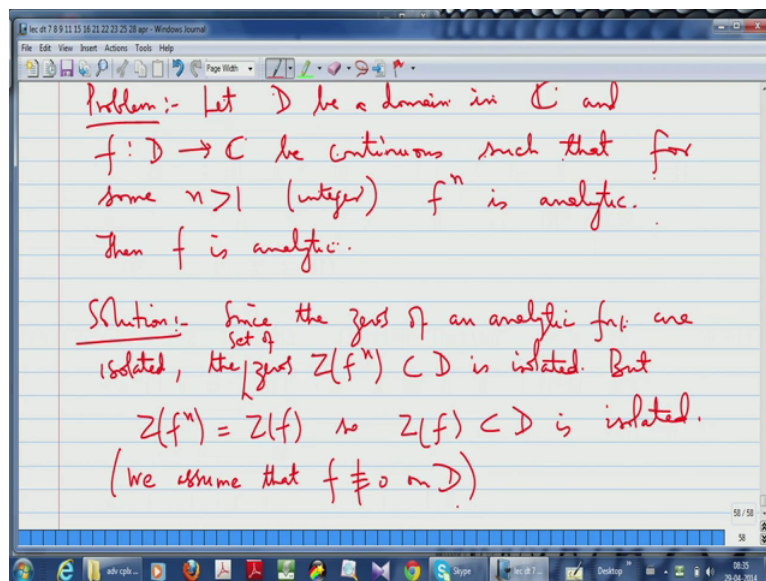 lec dt 7 8 9 11 15 16 21 22 23 25 28 apr - Windows Journal
File Edit View Insert Actions Tools Help
Page Width
Problem:- Let D be a domain in ℂ and
f : D → ℂ be continuous such that for
some n>1 (integer) fⁿ is analytic.
Then f is analytic.
Solution:- Since the zeros of an analytic fn. are
isolated, the set of zeros Z(fⁿ) ⊂ D is isolated. But
Z(fⁿ) = Z(f) so Z(f) ⊂ D is isolated.
(We assume that f ≢ 0 on D)
58 / 58
58
adv cpl... Skype lec dt 7... Desktop 08:35
29-04-2014